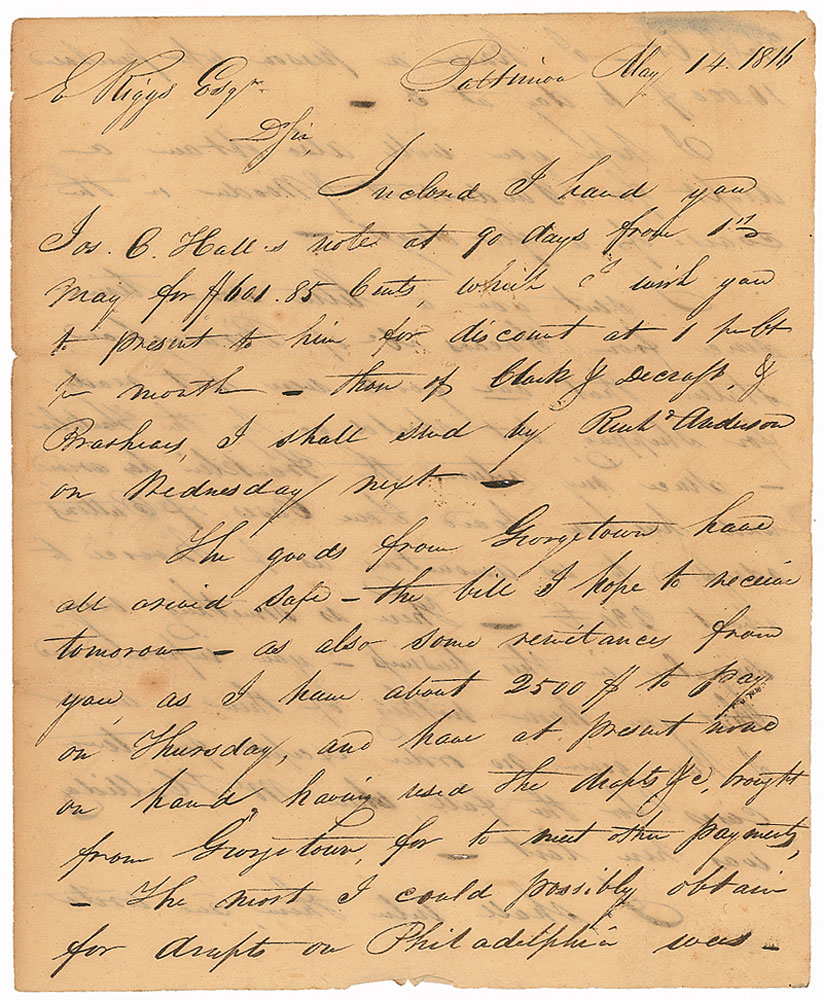 E Riggs Esqr. Baltimore May 14. 1816
D Sir,
Inclosed I hand you
Jos. C. Hall's note at 90 days from 1st
May for $601.85 Cents, which I wish you
to present to him for discount at 1 pr Ct
pr month – those of Clark & Decraft, &
Brashears, I shall send by Richd Anderson
on Wednesday next –
The goods from Georgetown have
all arived safe – the bill I hope to receive
tomorow – as also some remitances from
you, as I have about 2500 $ to pay
on Thursday, and have at present none
on hand, having used the drafts &c, brought
from Georgetown, for to meet other payments,
– The most I could possibly obtain
for drafts on Philadelphia was –